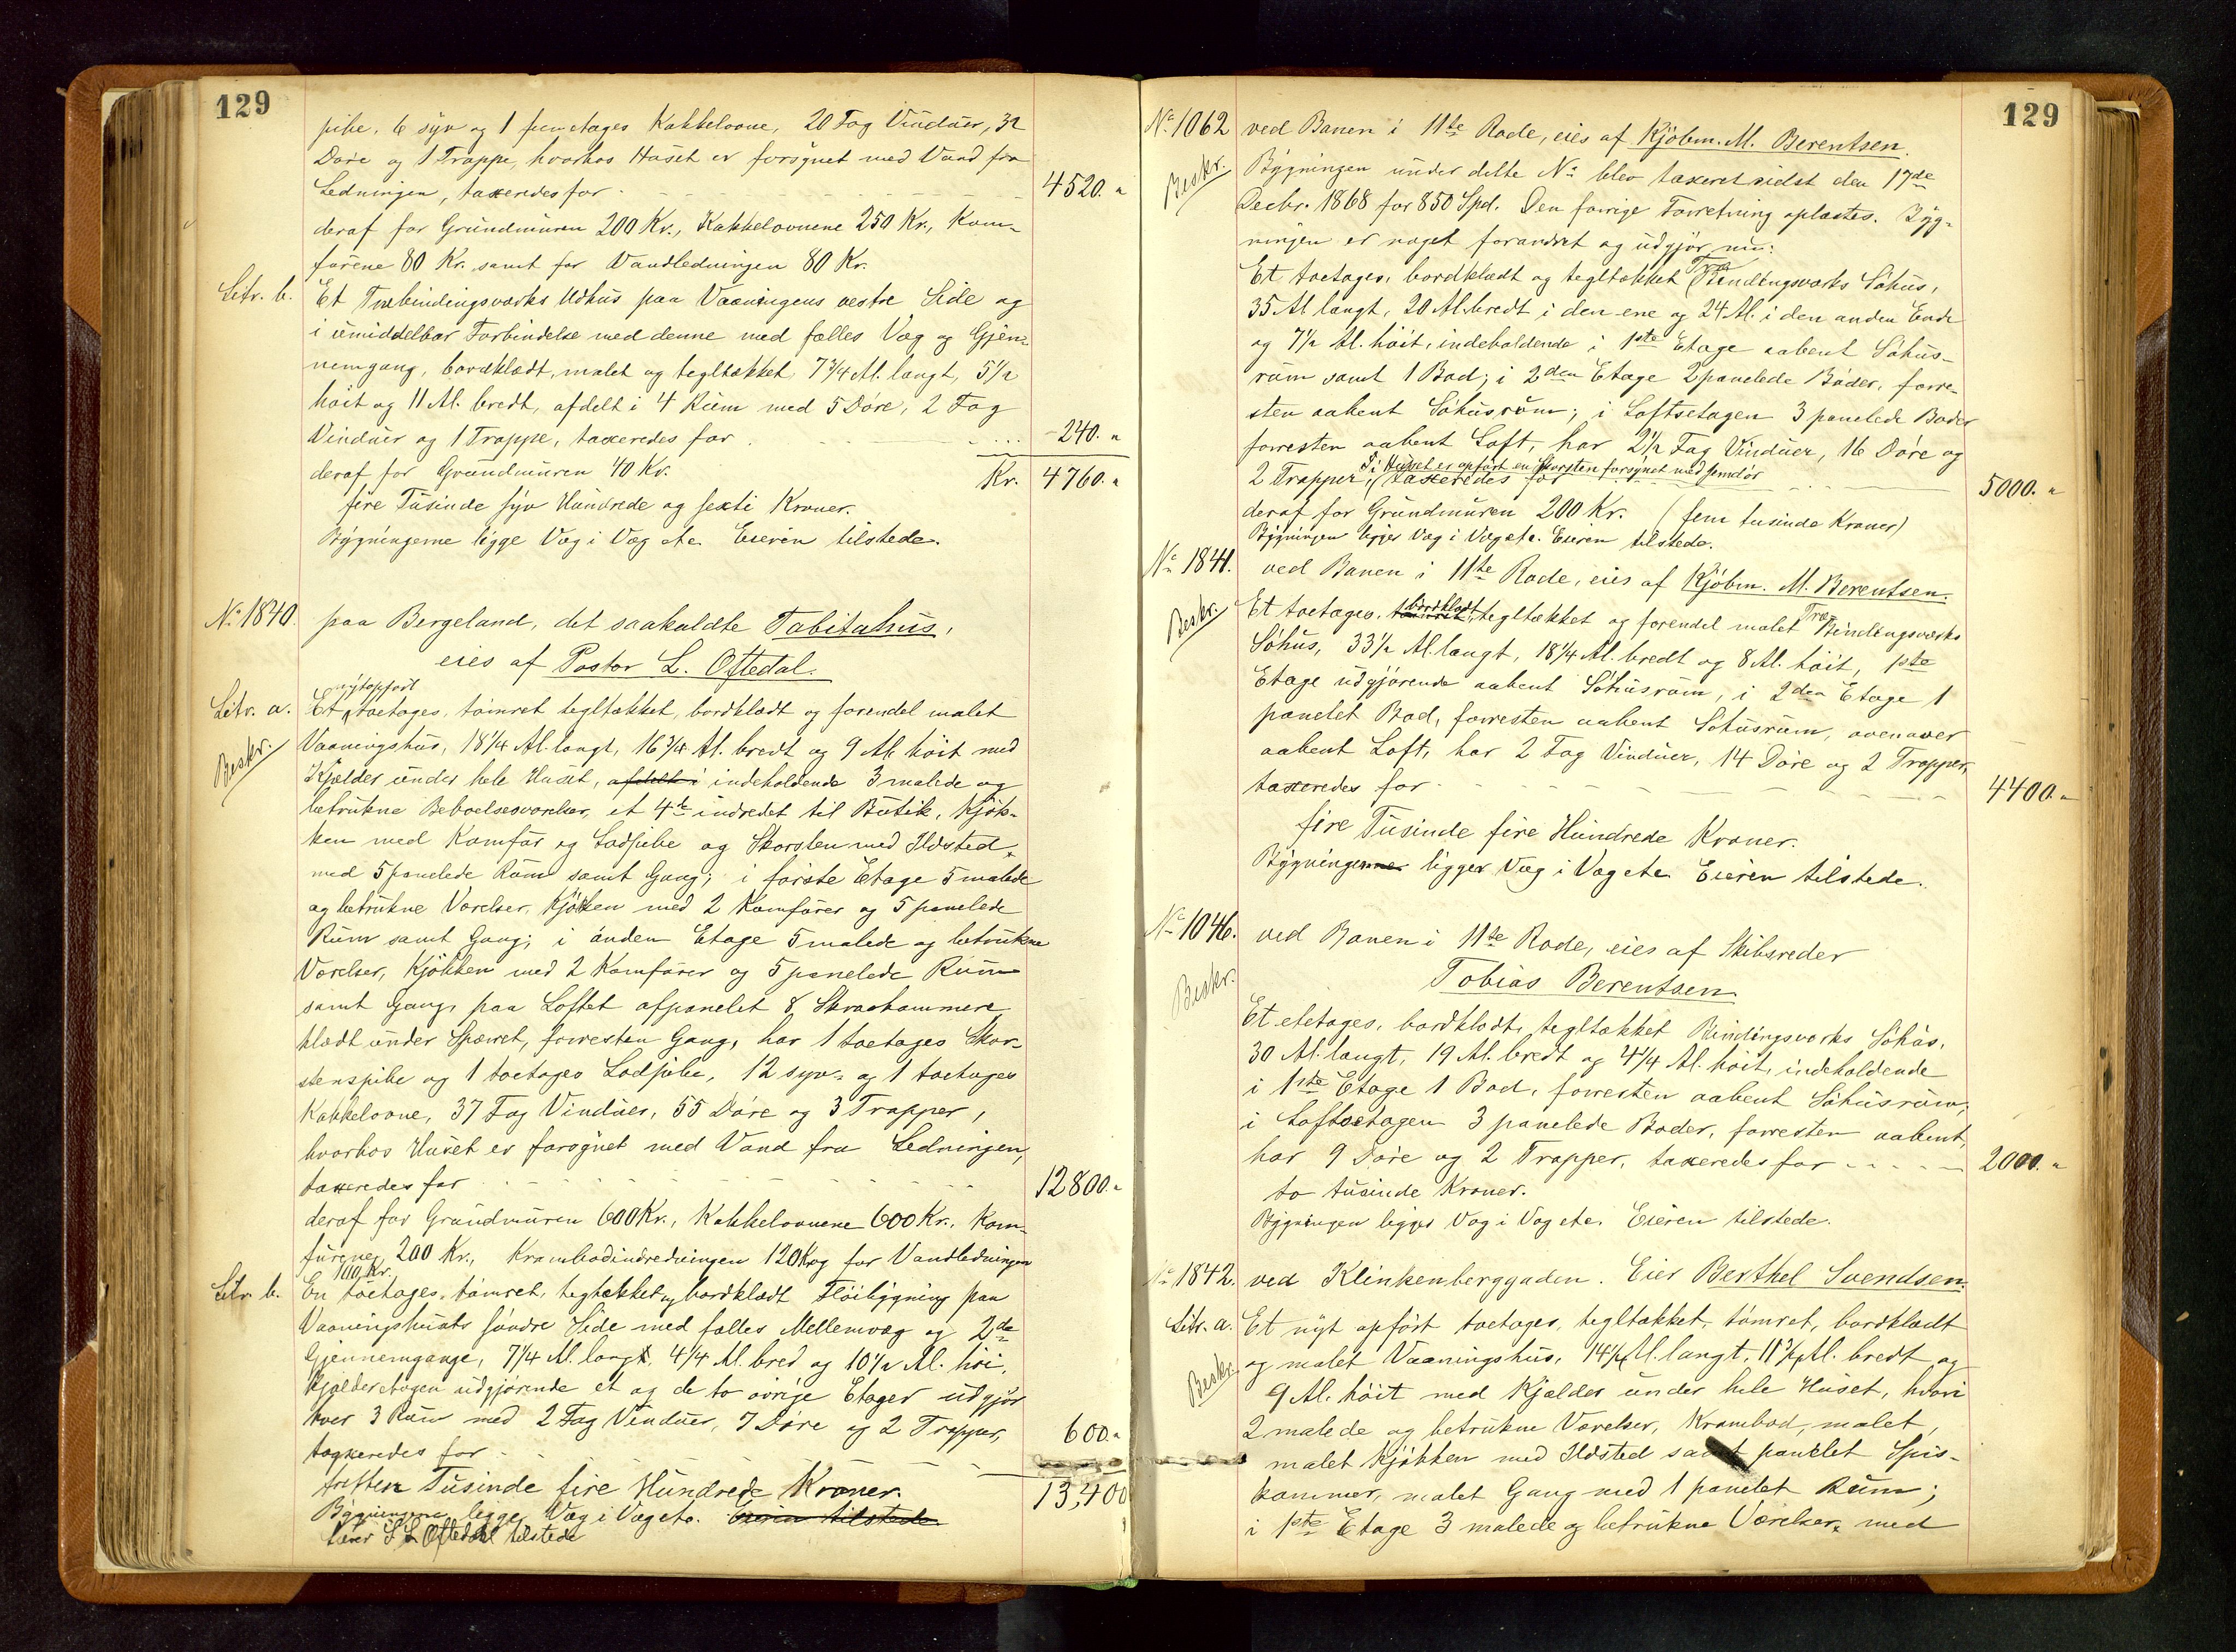 129
pibe, 6 syv og 1 femetages Kakkelovne, 20 Fag Vinduer, 32
Døre og 1 Trappe, hvorhos Huset er forsynet med Vand fra
Ledningen, taxeredes for 4520. "
deraf for Grundmuren 200 Kr., Kakkelovnene 250 Kr., Kom-
furene 80 Kr. samt for Vandledningen 80 Kr.
Litr. b. Et Træbindingsværks Udhus paa Vaaningens vestre Side og
i umiddelbar Forbindelse med denne med fælles Væg og Gjen-
nemgang, bordklædt, malet og tegltækket, 7 3/4 Al. langt, 5 1/2
høit og 11 Al. bredt, afdelt i 4 Rum med 5 Døre, 2 Fag
Vinduer og 1 Trappe, taxeredes for 240. "
deraf for Grundmuren 40 Kr. Kr. 4760. "
fire Tusinde syv Hundrede og sexti Kroner.
Bygningerne ligge Væg i Væg etc. Eieren tilstede.
No. 1840. paa Bergeland, det saakaldte Tabitahus,
eies af Pastor L. Oftedal.
nyt opført
Litr. a. Et toetages, tømret tegltækket, bordklædt og forendel malet
Beskr.
Vaaningshus, 18 1/4 Al. langt, 16 3/4 Al. bredt og 9 Al. høit med
Kjælder under hele Huset, afdelt i indeholdende 3 malede og
betrukne Beboelsesværelser, et 4de indredet til Butik, Kjøk-
ken med Komfur og Lodpibe og Skorsten med Ildsted,
med 5 panelede Rum samt Gang; i første Etage 5 malede
og betrukne Værelser, Kjøkken med 2 Komfurer og 5 panelede
Rum samt Gang; i anden Etage 5 malede og betrukne
Værelser, Kjøkken med 2 Komfurer og 5 panelede Rum
samt Gang, paa Loftet afpanelet 8 Skraakammere
klædt under Spærret, forresten Gang, har 1 toetages Skor-
stenspibe og 1 toetages Lodpibe, 12 syv- og 1 toetages
Kakkelovne, 37 Fag Vinduer, 55 Døre og 3 Trapper,
hvorhos Huset er forsynet med Vand fra Ledningen,
taxeredes for 12800. "
deraf for Grundmuren 600 Kr., Kakkelovnene 600 Kr., Kom-
furene 200 Kr., Krambodindredningen 120 Kr. og for Vandledningen
100 Kr.
Litr. b. En toetages, tømret, tegltækket og bordklædt Fløibygning paa
Vaaningshusets søndre Side med fælles Mellemvæg og 2de
Gjennemgange, 7 1/4 Al. lang, 4 1/4 Al. bred og 10 1/2 Al. høi,
Kjælderetagen udgjørende et og de to øvrige Etager udgjør
hver 3 Rum med 2 Fag Vinduer, 7 Døre og 2 Trapper,
taxeredes for 600. "
tretten Tusinde fire Hundrede Kroner. 13,400
Bygningerne ligge Væg i Væg etc. Eieren tilstede
Oftedal tilstede
129
No. 1062 ved Banen i 11te Rode, eies af Kjøbm. M. Berentsen.
Beskr.
Bygningen under dette No. blev taxeret sidst den 17de
Decbr. 1868 for 850 Spd. Den forrige Forretning oplæstes. Byg-
ningen er noget forandret og udgjør nu:
Et toetages, bordklædt og tegltækket Træ Bindingsværks Søhus,
35 Al. langt, 20 Al. bredt i den ene og 24 Al. i den anden Ende
og 7 1/2 Al. høit, indeholdende i 1ste Etage aabent Søhus-
rum samt 1 Bod; i 2den Etage 2 panelede Boder, forre-
sten aabent Søhusrum; i Loftsetagen 3 panelede Boder
forresten aabent Loft, har 2 1/2 Fag Vinduer, 16 Døre og
I Huset er opført en Skorsten forsynet med Jerndør
2 Trapper, taxeredes for 5000. "
deraf for Grundmuren 200 Kr. (fem tusinde Kroner)
Bygningen ligger Væg i Væg etc. Eieren tilstede.
No. 1841. ved Banen i 11te Rode, eies af Kjøbm. M. Berentsen.
Beskr.
Et toetages, tømret, bordklædt, tegltækket og forendel malet Træ Bindingsværks
Søhus, 33 1/2 Al. langt, 18 1/4 Al. bredt og 8 Al. høit, 1ste
Etage udgjørende aabent Søhusrum, i 2den Etage 1
panelet Bod, forresten aabent Søhusrum, ovenover
aabent Loft, har 2 Fag Vinduer, 14 Døre og 2 Trapper,
taxeredes for 4400. "
fire Tusinde fire Hundrede Kroner.
Bygningerne ligger Væg i Væg etc. Eieren tilstede.
No. 1046. ved Banen i 11te Rode, eies af Skibsreder
Beskr.
Tobias Berentsen
Et etetages, bordklædt, tegltækket Bindingsværks Søhus,
30 Al. langt, 19 Al. bredt og 4 1/4 Al. høit, indeholdende
i 1ste Etage 1 Bod, forresten aabent Søhusrum,
i Loftsetagen 3 panelede Boder, forresten aabent,
har 9 Døre og 2 Trapper, taxeredes for 2000. "
to tusinde Kroner.
Bygningen ligger Væg i Væg etc. Eieren tilstede.
No. 1842. ved Klinkenberggaden. Eier Berthel Svendsen.
Litr. a. Et nyt opført toetages, tegltækket, tømret, bordklædt
Beskr.
og malet Vaaningshus, 14 1/4 Al. langt, 11 3/4 Al. bredt og
9 Al. høit med Kjælder under hele Huset, hvori
2 malede og betrukne Værelser, Krambod, malet,
malet Kjøkken med Ildsted samt panelet Spis-
kammer, malet Gang med 1 panelet Rum;
i 1ste Etage 3 malede og betrukne Værelser, med